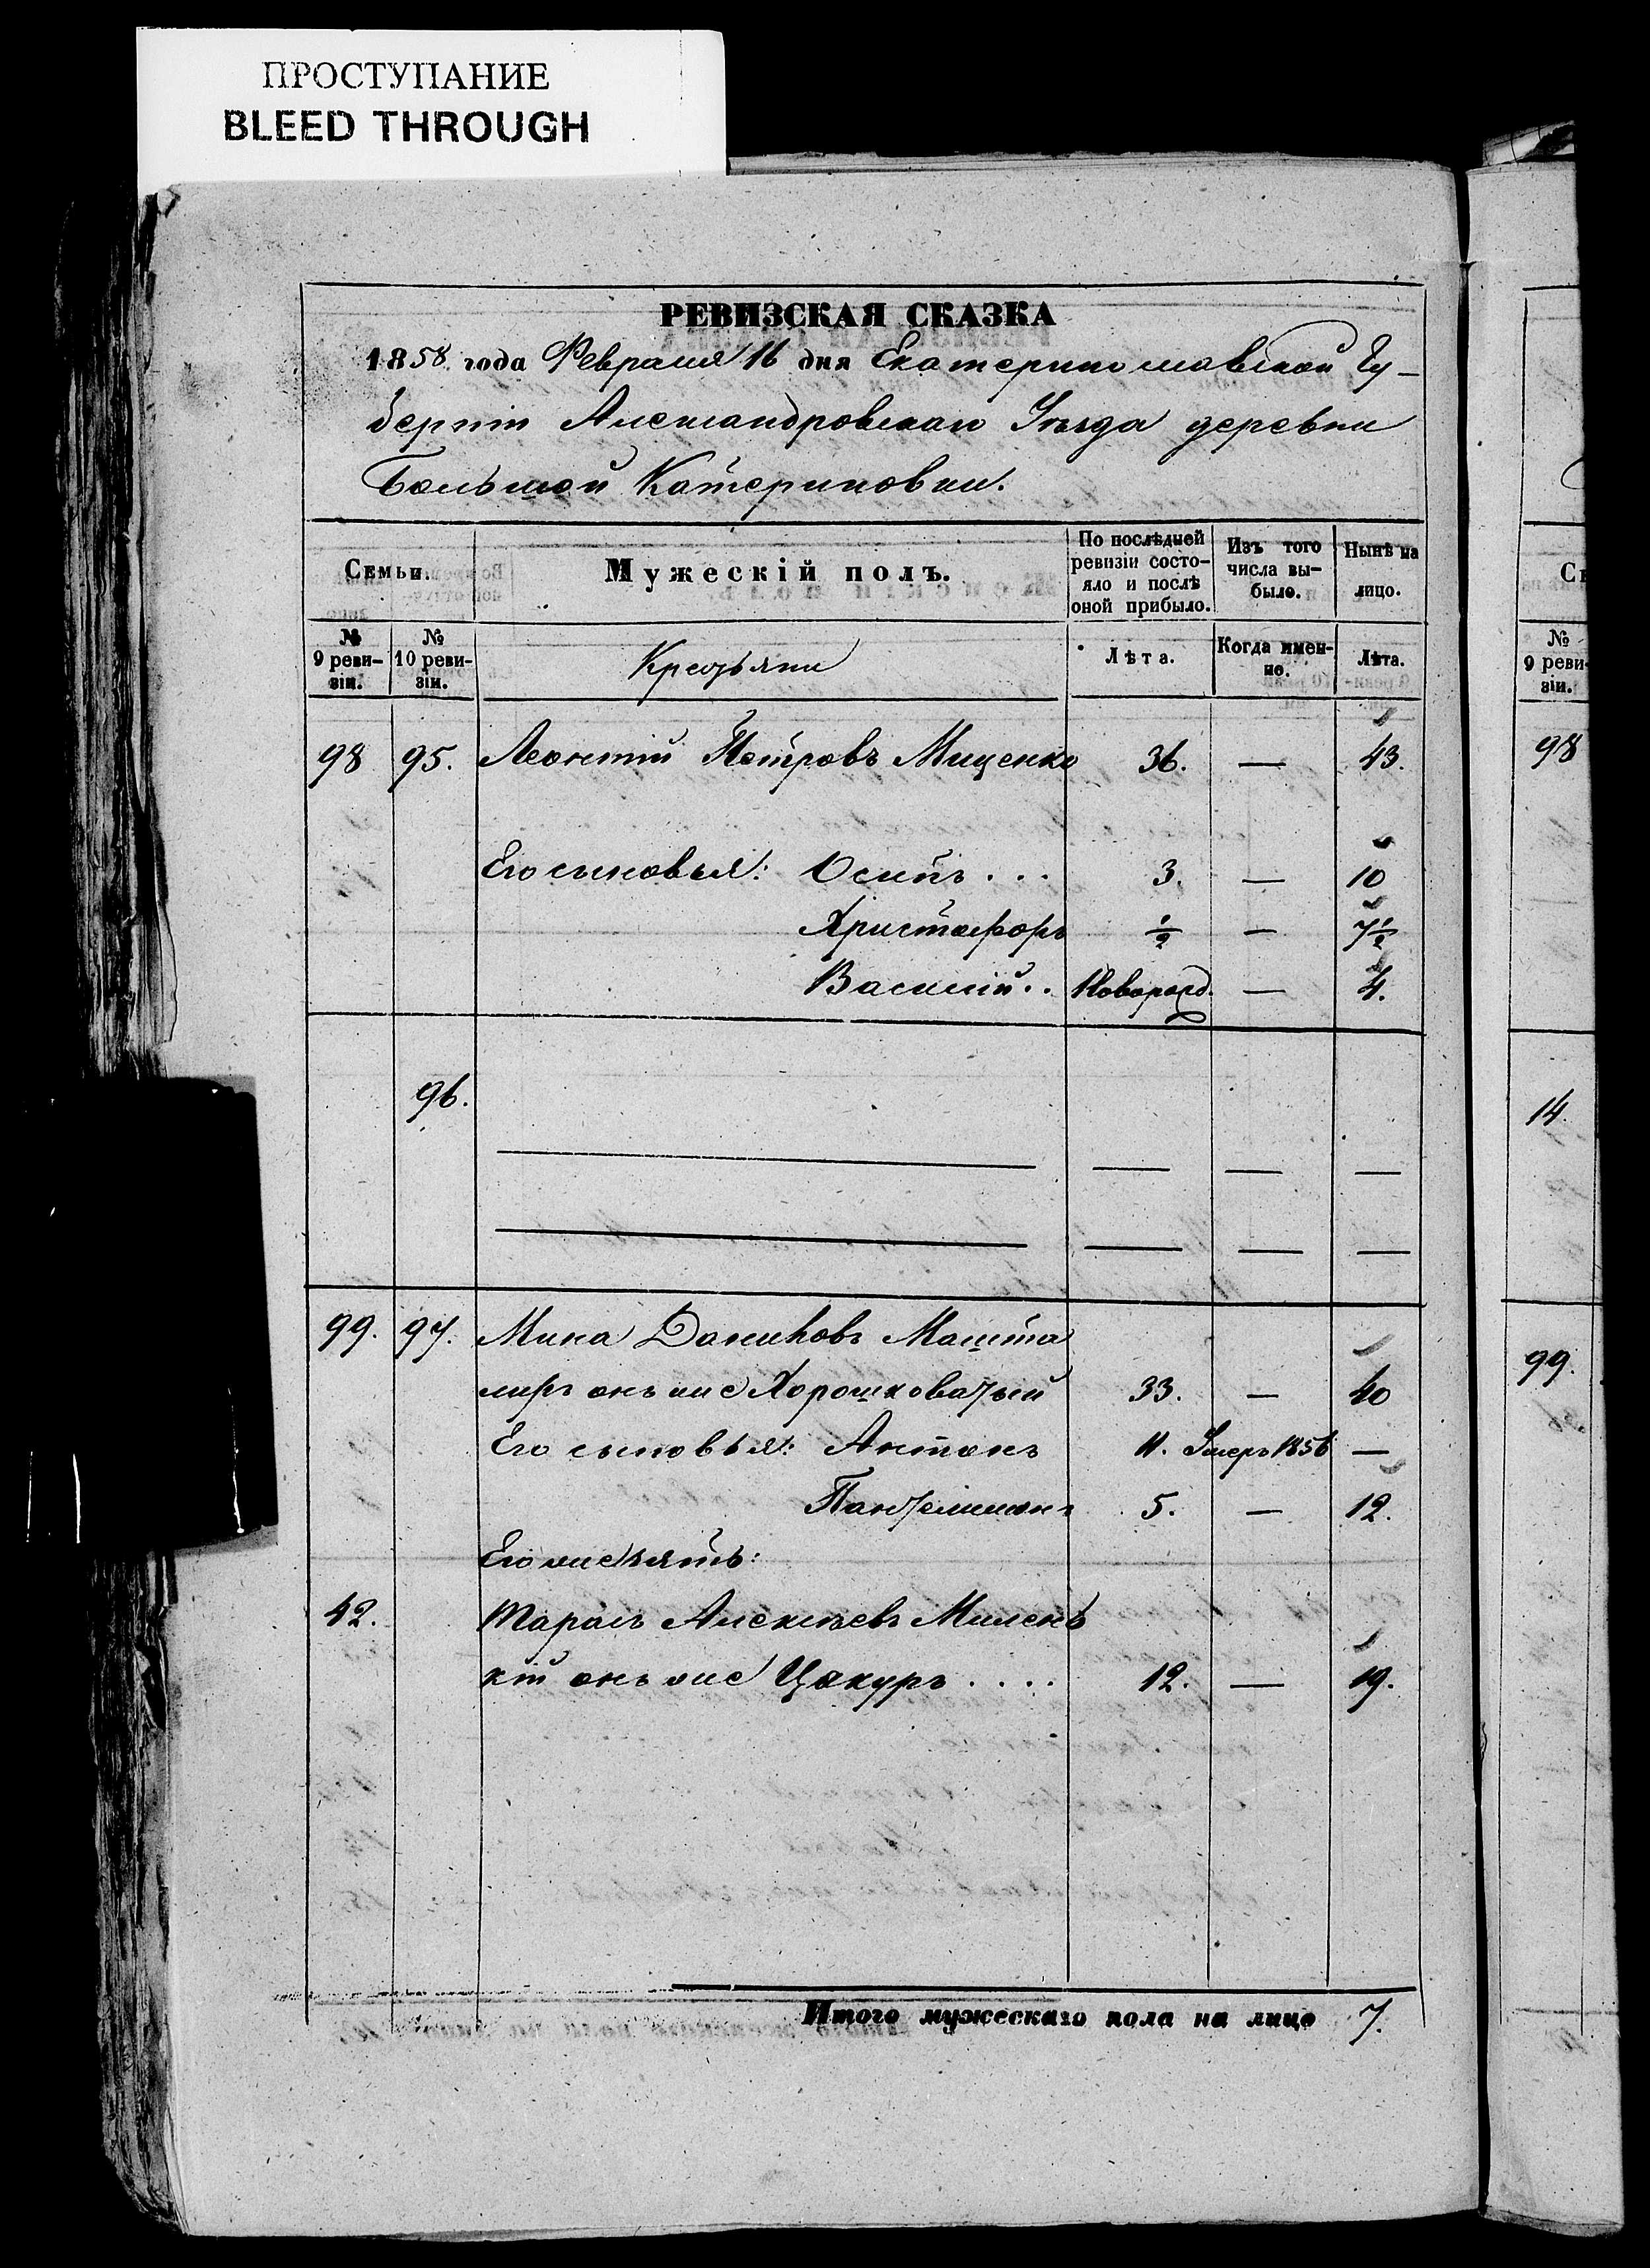 ПРОСТУПАНИЕ
BLEED THROUGH
РЕВИЗСКАЯ СКАЗКА
1858 года Февраля 16 дня Екатеринославской Гу-
берніи Александровскаго Уѣзда деревни
Большой Катериновки.
Семьи. Мужескій полъ. По послѣдней ревизіи состояло и послѣ оной прибыло. Изъ того числа выбыло. Нынѣ на лицо.
№ 9 ревизіи. № 10 ревизіи. Крестьяни Лѣта. Когда именно. Лѣта.
98 95. Леонтій Петровъ Мищенко 36. — 43.
Его сыновья: Осипъ . . . 3. — 10
Христофоръ ½ — 7½
Василій . . Новорожд. — 4.
96.
99. 97. Мина Даниловъ Машта
лиръ онъ же Хорошковатый 33. — 40
Его сыновья: Антонъ 11. Умеръ 1856 —
Пантелимонъ 5. — 12.
Его же зять:
42. Тарасъ Алексѣевъ Милень
кій онъ же Цокуръ . . . . 12. — 19.
Итого мужескаго пола на лицо 7.
№
9 реви-
зіи.
98
14.
99.